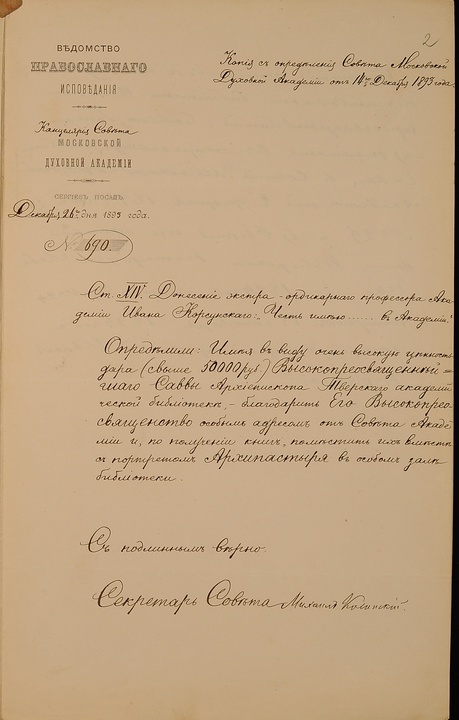 2
ВѢДОМСТВО
ПРАВОСЛАВНАГО
ИСПОВѢДАНІЯ
Канцелярія Совѣта
МОСКОВСКОЙ
ДУХОВНОЙ АКАДЕМІИ
СЕРГІЕВЪ ПОСАДЪ.
Декабря 26 дня 1893 года.
№ 690
Копія съ опредѣленія Совѣта Московской
Духовной Академіи отъ 14го Декабря 1893 года.
Ст. XIV. Донесеніе экстра-ординарнаго профессора Ака-
деміи Ивана Корсунскаго: „Честь имѣю ...... въ Академіи."
Опредѣлили: Имѣя въ виду очень высокую цѣнность
дара (свыше 50000 руб.) Высокопреосвященнѣй-
шаго Саввы Архіепископа Тверскаго академи-
ческой библіотекѣ, – благодарить Его Высокопрео-
священство особымъ адресомъ отъ Совѣта Акаде-
міи и, по полученіи книгъ, помѣстить ихъ вмѣстѣ
съ портретомъ Архипастыря въ особомъ залѣ
библіотеки.
Съ подлиннымъ вѣрно.
Секретарь Совѣта Михаилъ